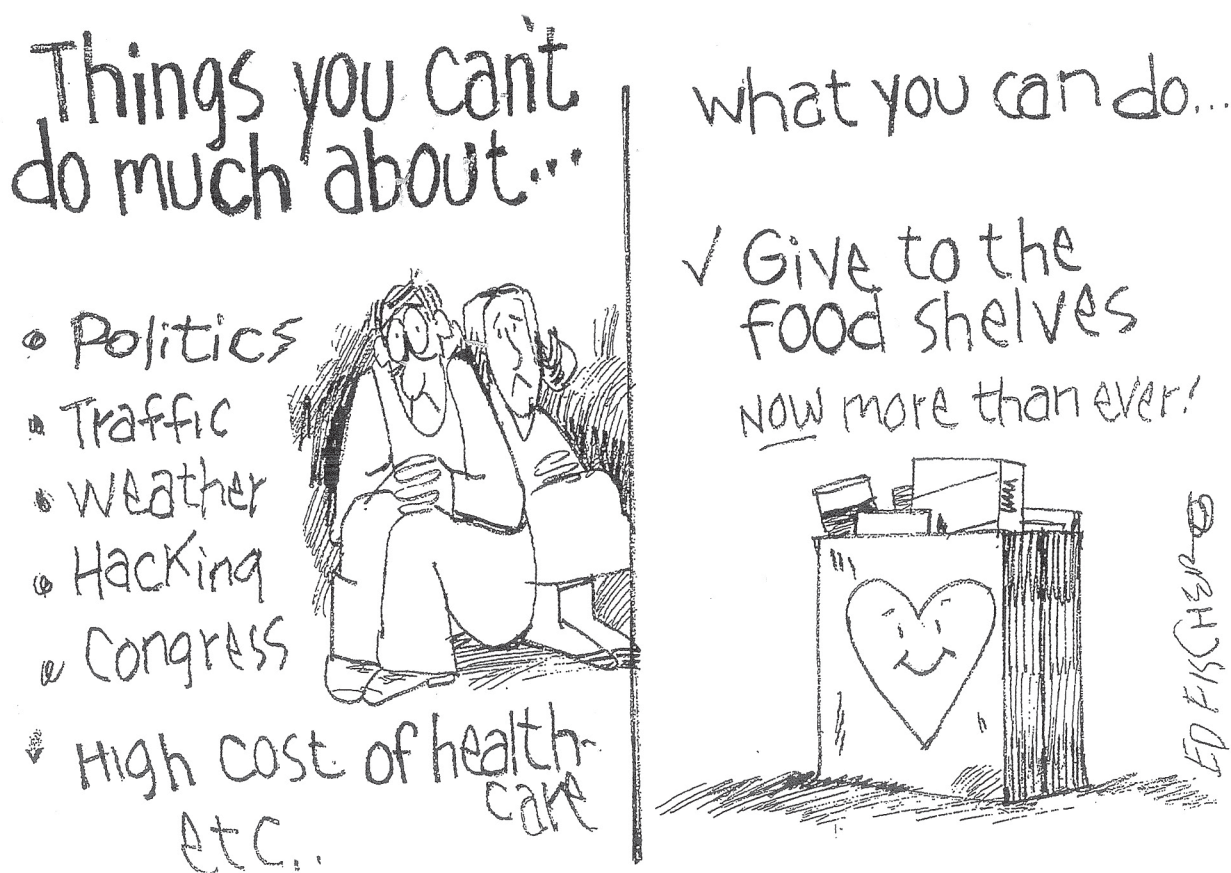 Things you can't
do much about...
• Politics
• Traffic
• Weather
• Hacking
• Congress
• High cost of health-
care
etc..
what you can do...
✓ Give to the
food shelves
NOW more than ever!
ED FISCHER